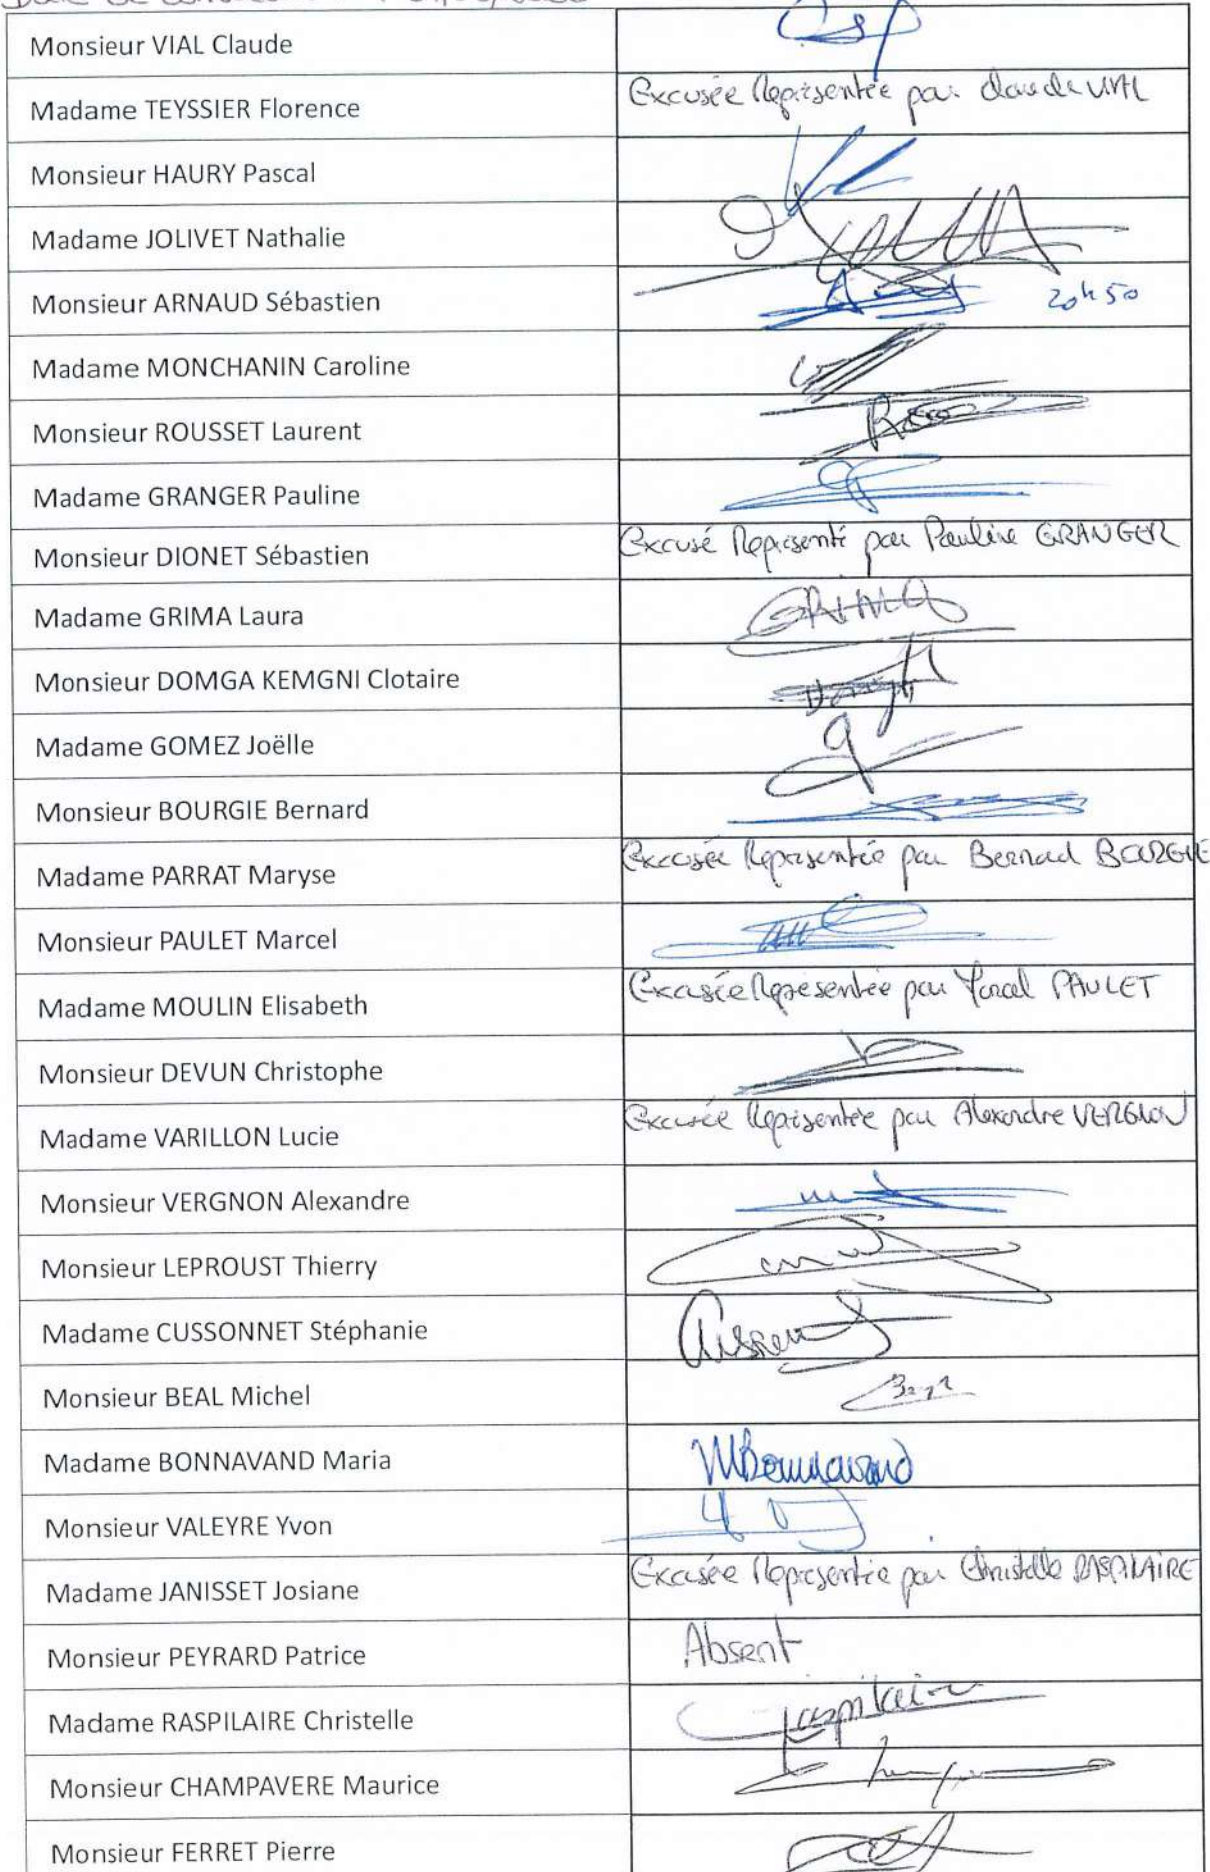 Monsieur VIAL Claude
Madame TEYSSIER Florence Excusée Représentée par Claude VIAL
Monsieur HAURY Pascal
Madame JOLIVET Nathalie
Monsieur ARNAUD Sébastien 20h50
Madame MONCHANIN Caroline
Monsieur ROUSSET Laurent
Madame GRANGER Pauline
Monsieur DIONET Sébastien Excusé Représenté par Pauline GRANGER
Madame GRIMA Laura GRIMA
Monsieur DOMGA KEMGNI Clotaire
Madame GOMEZ Joëlle
Monsieur BOURGIE Bernard
Madame PARRAT Maryse Excusée Représentée par Bernard BOURGIE
Monsieur PAULET Marcel
Madame MOULIN Elisabeth Excusée Représentée par Marcel PAULET
Monsieur DEVUN Christophe
Madame VARILLON Lucie Excusée Représentée par Alexandre VERGNON
Monsieur VERGNON Alexandre
Monsieur LEPROUST Thierry
Madame CUSSONNET Stéphanie
Monsieur BEAL Michel
Madame BONNAVAND Maria MBonnavand
Monsieur VALEYRE Yvon
Madame JANISSET Josiane Excusée Représentée par Christelle RASPILAIRE
Monsieur PEYRARD Patrice Absent
Madame RASPILAIRE Christelle Raspilaire
Monsieur CHAMPAVERE Maurice
Monsieur FERRET Pierre